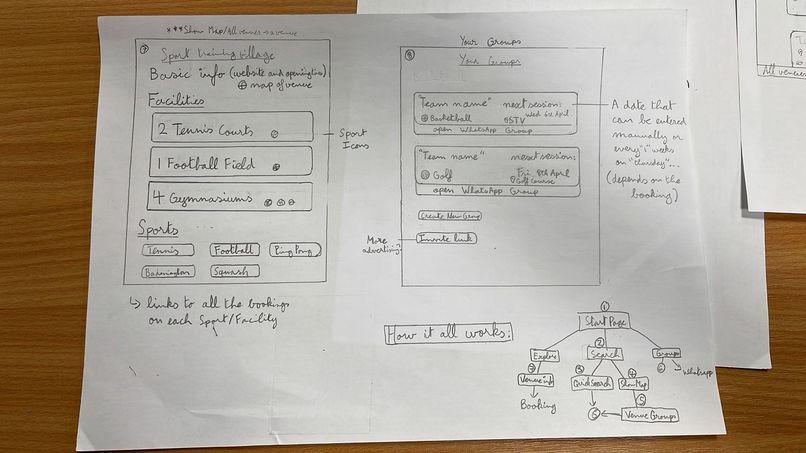 ***Show Map/All venues → a venue
7
Sport training village
Basic info (website and opening times)
⊕ map of venue
Facilities
2 Tennis Courts
1 Football Field
4 Gymnasiums
Sport
Icons
Sports
Tennis
Football
Ping Pong
Badmington
Squash
↳ links to all the bookings
on each Sport/Facility
Your Groups
8
Your Groups
"Team name" next session:
Basketball
Wed 6th April
STV
open WhatsApp Group
"Team name" nesct session:
Golf
Fri 8th April
Golf Course
open WhatsApp Group
Create New Group
Invite link
More
advertising
A date that
can be entered
manually or
every "1" weeks
on "thursday"...
(depends on the
booking)
How it all works:
1
Start Page
Explore
2
Search
Groups
7
Venue info
3
Quick Search
4
Show Map
Whatsapp
Booking
5
6
Venue Groups
All venues